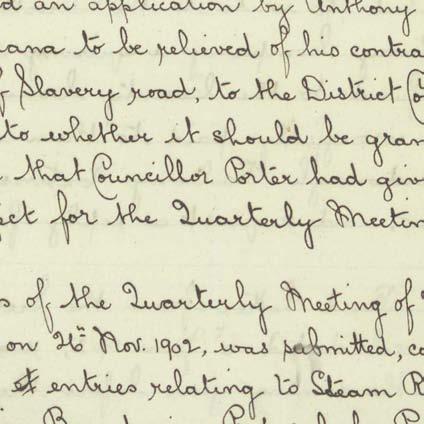 d an application by Anthony
ana to be relieved of his contra
f Slavery road, to the District Co
to whether it should be gran
that Councillor Porter had giv
ect for the Quarterly Meetin
s of the Quarterly Meeting of
on 26th Nov. 1902, was submitted, co
entries relating to Steam R